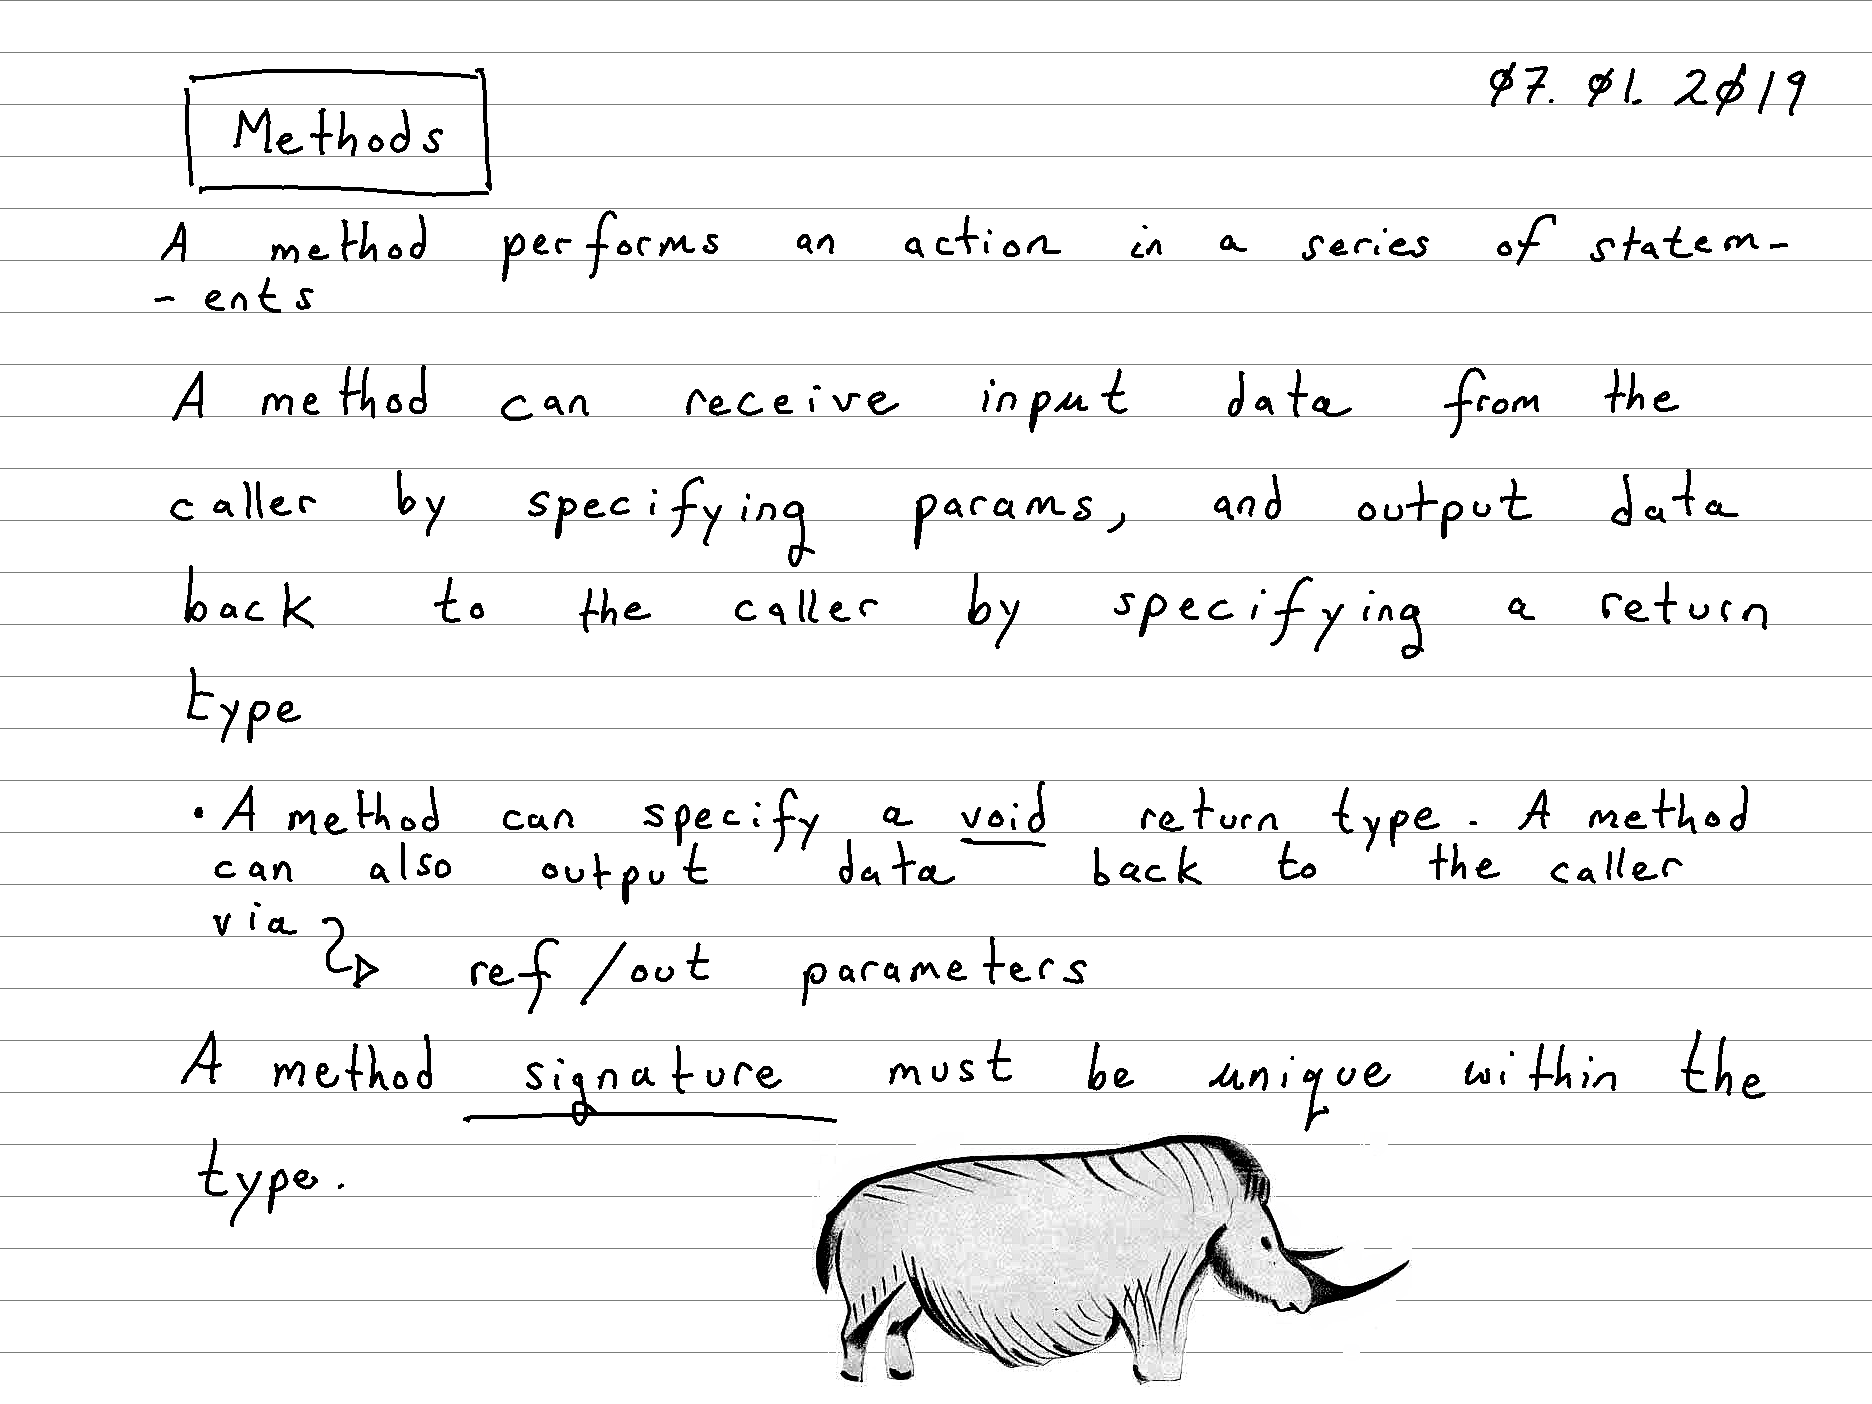 Methods
07. 01. 2019
A method performs an action in a series of statem-
- ents
A method can receive input data from the
caller by specifying params, and output data
back to the caller by specifying a return
type
• A method can specify a void return type. A method
can also output data back to the caller
via
ref /out parameters
A method signature must be unique within the
type.